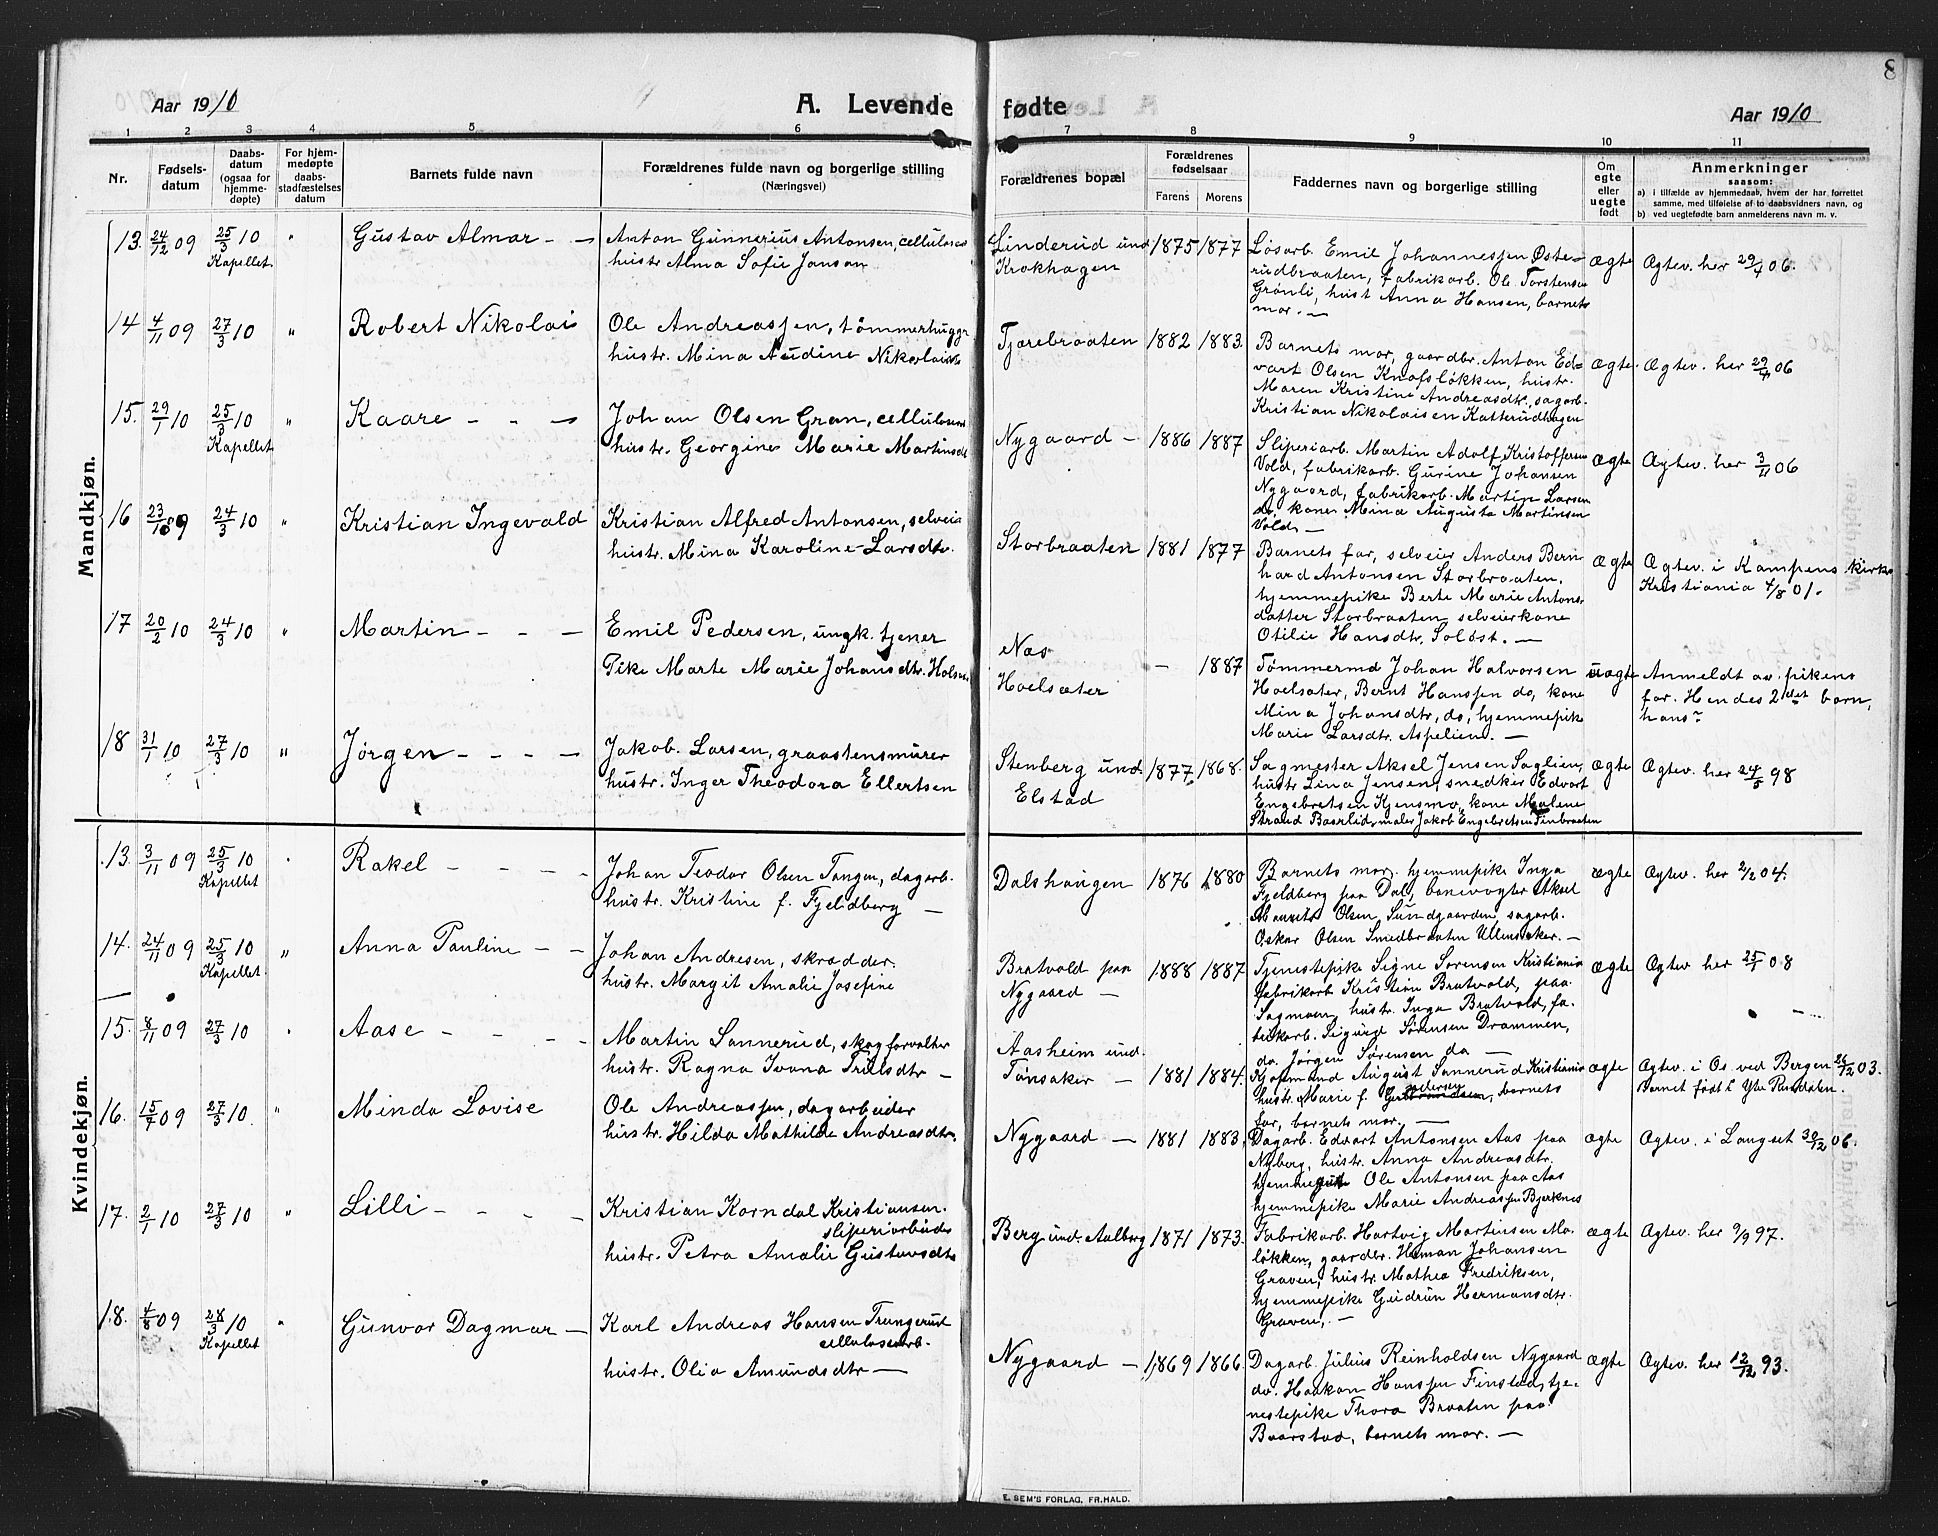 8
Aar 1910
A. Levende fødte
Aar 1910
1 2 3 4 5 6 7 8 9 10 11
Nr.
Fødsels-
datum
Daabs-
datum
(ogsaa for
hjemme-
døpte)
For hjem-
medøpte
daabs-
stadfæstelses
datum
Barnets fulde navn
Forældrenes fulde navn og borgerlige stilling
(Næringsvei)
Forældrenes bopæl
Forældrenes
fødselsaar
Farens Morens
Faddernes navn og borgerlige stilling
Om
egte
eller
uegte
født
Anmerkninger
saasom:
a) i tilfælde av hjemmedaab, hvem der har forrettet
samme, med tilføielse af to daabsvidners navn, og
b) ved uegtefødte barn anmelderens navn m. v.
Mandkjøn.
13. 24/12 09 25/3 10 " Gustav Almar - -
Kapellet
Anton Gunnerius Antonsen, cellulosearb
hustr. Alma Sofie Jansen
Linderud und
Krokhagen
1875 1877
Løsarb. Emil Johannessen Øste-
rudbraaten, fabrikarb. Ole Torstensen
Grønli, hust Anna Hansen, barnets
mor. -
ægte
Ægtev. her 29/4 06.
14 4/11 09 27/3 10 " Robert Nikolai
Ole Andreassen, tømmerhugger
hustr. Mina Audine Nikolaisdtr
Tjærebraaten
1882 1883.
Barnets mor, gaardbr. Anton Ed=
vart Olsen Knafsløkken, hustr.
Maren Kristine Andreasdtr, sagarb.
Kristian Nikolaisen Katterudhagen
ægte.
Ægtev. her 29/4 06
15. 29/1 10 25/3 10 " Kaare - - -
Kapellet
Johan Olsen Gran, cellulosearb
hustr. Georgine Marie Martinsdtr
Nygaard -
1886 1887
Sliperiarb. Martin Adolf Kristoffersen
Vold, fabrikarb. Gurine Johansen
Nygaard, fabrikarb. Martin Larsen
do, kone Mina Augusta Martinsen
Vold. -
ægte
Ægtev. her 3/11 06
16 23/10 09 24/3 10 " Kristian Ingevald
Kristian Alfred Antonsen, selveier
hustr. Mina Karoline Larsdtr.
Storbraaten
1881 1877
Barnets far, selveier Anders Bern
hard Antonsen Storbraaten.
hjemmepike Berte Marie Antons-
datter Storbraaten, selveierkone
Otilie Hansdtr. Solbst. -
ægte
Ægtev. i Kampens kirke
Kristiania 4/8 01.
17 20/2 10 24/3 10 " Martin - - -
Emil Pedersen, ungk. tjener
Pike Marte Marie Johansdtr. Holsæter
Næs
Hoelsæter
- 1887
Tømmermd Johan Halvorsen
Hoelsæter, Bernt Hanssen do, kone
Mina Johansdtr, do, hjemmepik
Marie Larsdtr. Aspelien. -
uægte
Anmeldt av pikens
far. Hendes 2det barn,
hans?
18 31/1 10 27/3 10 " Jørgen - - - -
Jakob. Larsen, graastensmurer
hustr. Inger Theodora Ellertsen
Stenberg und.
Elstad
1877. 1868.
Sagmester Aksel Jensen Saglien,
hustr Lina Jensen, snedker Edvart
Engebretsen Kjensmo, kone Malene
Strand Baarlid, maler Jakob Engebretsen Finbraaten
ægte
Ægtev. her 24/5 98
Kvindekjøn.
13. 3/11 09 25/3 10 " Rakel - - - -
Kapellet
Johan Teodor Olsen Tangen, dagarb.
hustr. Kristine f. Fjeldberg -
Dalshaugen
1876 1880
Barnets mor, hjemmepike Inga
Fjeldberg paa Dal, banevogter Aksel
Maurits Olsen Sundgaarden, sagarb.
Oskar Olsen Smedbraaten Ullensaker. -
ægte
Ægtev. her 2/2 04.
14. 24/11 09 25/3 10 " Anna Pauline - -
Kapellet.
Johan Andresen, skrædder.
hustr. Margit Amalie Josefine
Bratvold paa
Nygaard -
1888 1887
Tjenestepike Signe Sørensen Kristiania
fabrikarb Kristian Bratvold, paa
Sagmoen, hustr. Inga Bratvold, fa-
brikarb. Sigurd Sørensen Drammen,
do. Jørgen Sørensen do -
ægte
Ægtev her 25/1 08
15. 8/11 09 27/3 10 " Aase - - - -
Martin Sannerud, skogforvalter
hustr. Ragna Ivana Trulsdtr -
Aasheim und.
Tønsaker -
1881 1884.
Kjøpmand August Sannerud Kristiania
hustr. Marie f. Pedersen, barnets
far, barnets mor. -
ægte
Ægtev. i Os ved Bergen 26/12 03.
Barnet født i Ytre Rendalen.
16. 15/7 09 27/3 10. " Minda Lovise
Ole Andreassen, dagarbeider
hustr. Hilda Mathilde Andreasdtr.
Nygaard -
1881 1883.
Dagarb. Edvart Antonsen Aas paa
Nyberg, hustr. Anna Andreasdtr.
Ole Antonsen paa Aas
hjemmepike Marie Andreassen Bjerknes
ægte
Ægtev. i Langset 30/12 06.
17. 2/1 10 27/3 10 " Lilli - - - -
Kristian Korndal Kristiansen.
sliperiarbeider
hustr. Petra Amalie Gustavsdtr
Berg und. Aalberg
1871 1873.
Fabrikarb. Hartvig Martinsen Mo-
løkken, gaardbr. Herman Johansen
Graven, hustr. Mathea Fredriksen,
hjemmepike Gudrun Hermansdtr.
Graven, -
ægte
Ægtev. her 9/9 97.
18. 4/8 09 28/3 10 " Gunvor Dagmar -
Kapellet
Karl Andreas Hansen Trangerud
cellulosearb.
hustr. Olia Amundsdtr -
Nygaard -
1869 1866.
Dagarb. Julius Reinholdsen Nygaard
do. Haakon Hanssen Finstad, tje-
nestepike Thora Braaten paa
Baarstad, barnets mor. -
ægte
Ægtev. her 12/12 93.
E. SEM'S FORLAG, FR.HALD.